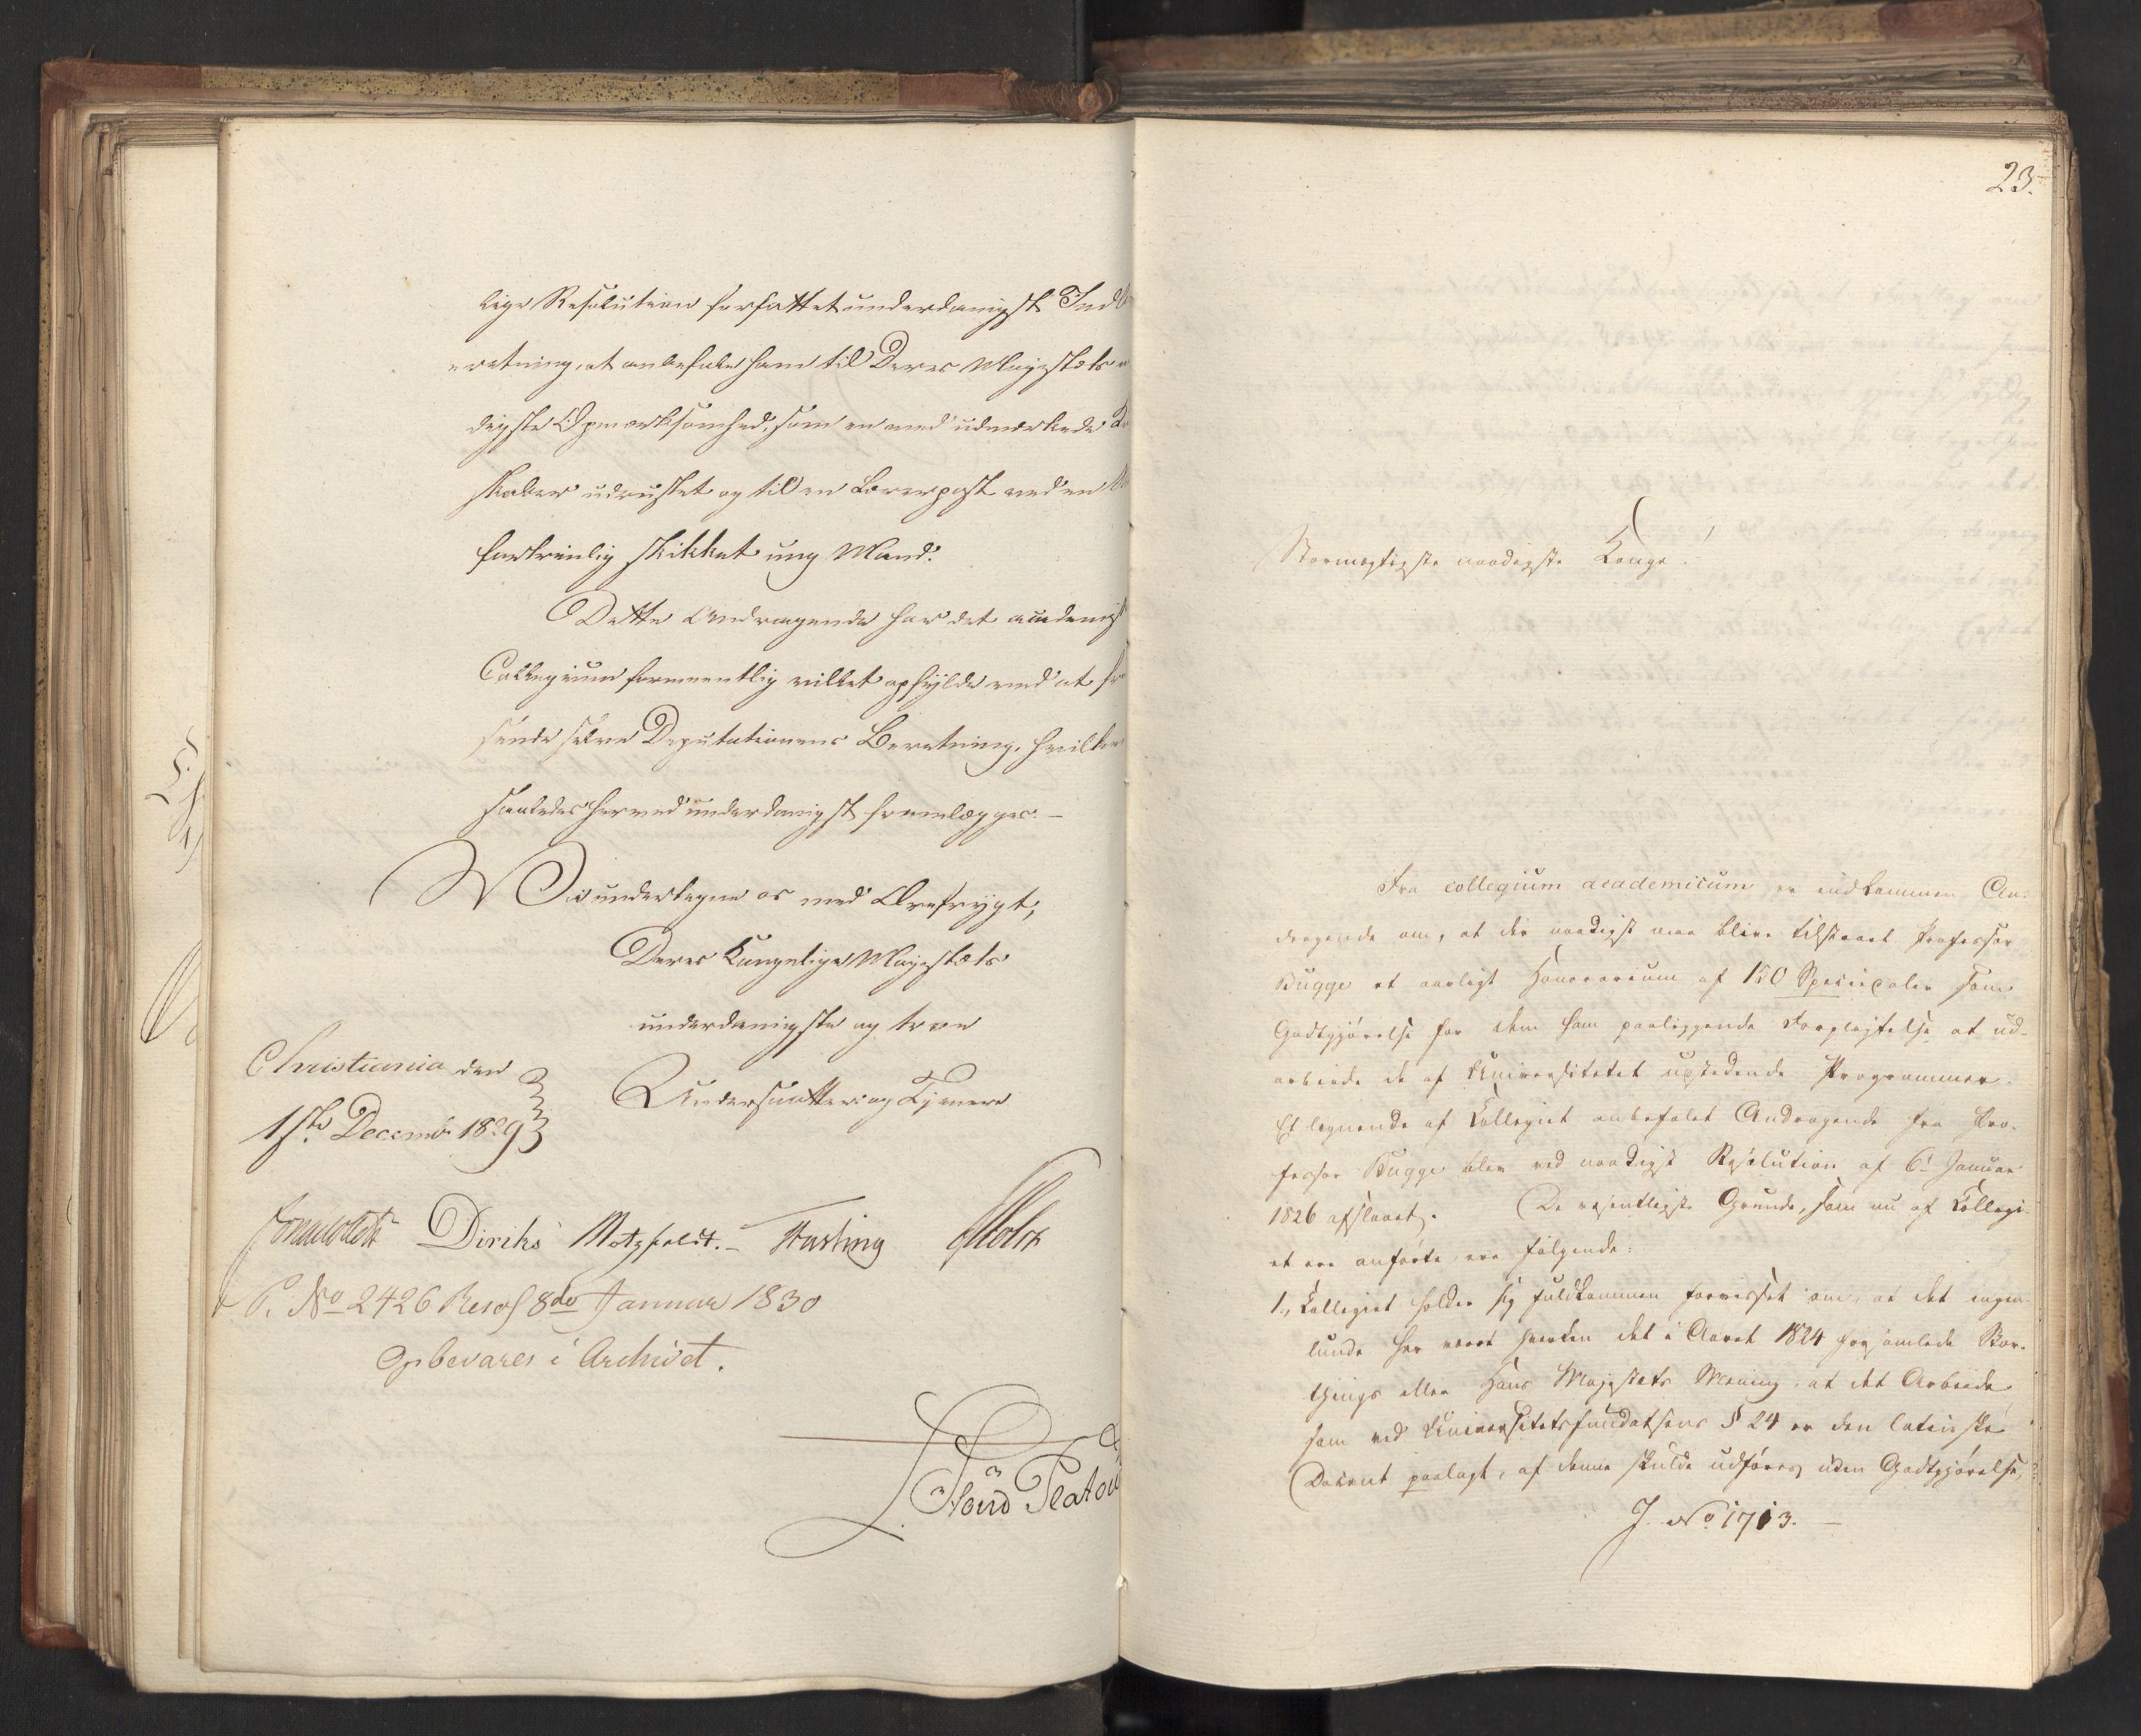 lige Resolution forfattet underdanigst Ind
eretning, at anbefale ham til Deres Majestæts
digste Opmærksomhed, som en med udmærkede
skaber udrustet og til en Lærerpost ved en
fortrinlig skikket ung Mand.
Dette Andragende har det academis
Collegium formeentlig villet opfylde ved at
sende selve Deputationens Beretning, hvilken
saaledes herved underdanigst fremlægges. –
Vi undertegne os med Ærefrygt,
Deres Kongelige Majestæts
underdanigste og troe
Undersaatter og Tjenere
Christiania den
1ste Decembr 1829
Diriks Motzfeldt. – Fasting Holst
P. No 2426 Resol 8de Januar 1830
Opbevares i Archivet.
23.
Stormægtigste naadigste Konge!
Fra collegium academicum er indkommen An-
dragende om, at der naadigst maa blive tilstaaet Professor
Bugge et aarligt Honorarium af 150 Speciedaler som
Godtgjørelse for den ham paaliggende Forpligtelse at ud-
arbeide de af Universitetet udstedende Programmer.
Et lignende af Collegiet anbefalet Andragende fra Pro-
fessor Bugge blev ved naadigst Resolution af 6te Januar
1826 afslaaet. De væsentligste Grunde, som nu af Collegi-
et ere anførte ere følgende:
1., Collegiet holder sig fuldkommen forvisset om, at det ingen-
lunde har været hverken det i Aaret 1824 forsamlede Stor-
things eller Hans Majestæts Mening, at det Arbeide
som ved Universitetsfundatsens § 24 er den latinske
Docent paalagt, af denne skulde udføres uden Godtgjørelse,
J. No 1713. –